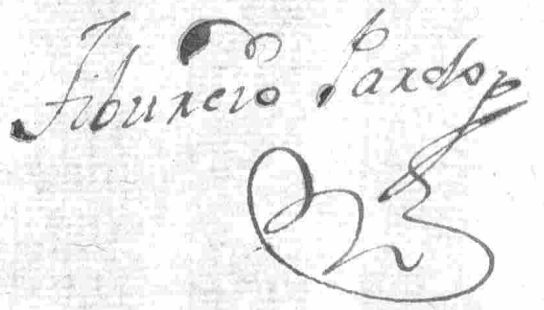 Tiburcio Pardo